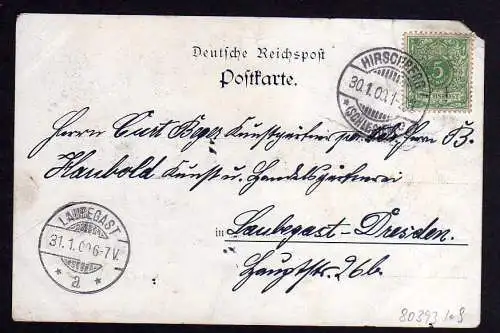 Deutsche Reichspost
Postkarte.
HIRSCHBERG
30.1.00.1-
(SCHLESIEN)
5
Herrn Curt Kunstgärtner Herrn B.
Haubold Kunst u. Handelsgärtnerei
in Laubegast-Dresden.
Hauptstr. 26b.
LAUBEGAST
31.1.00 6-7V.
a
80393